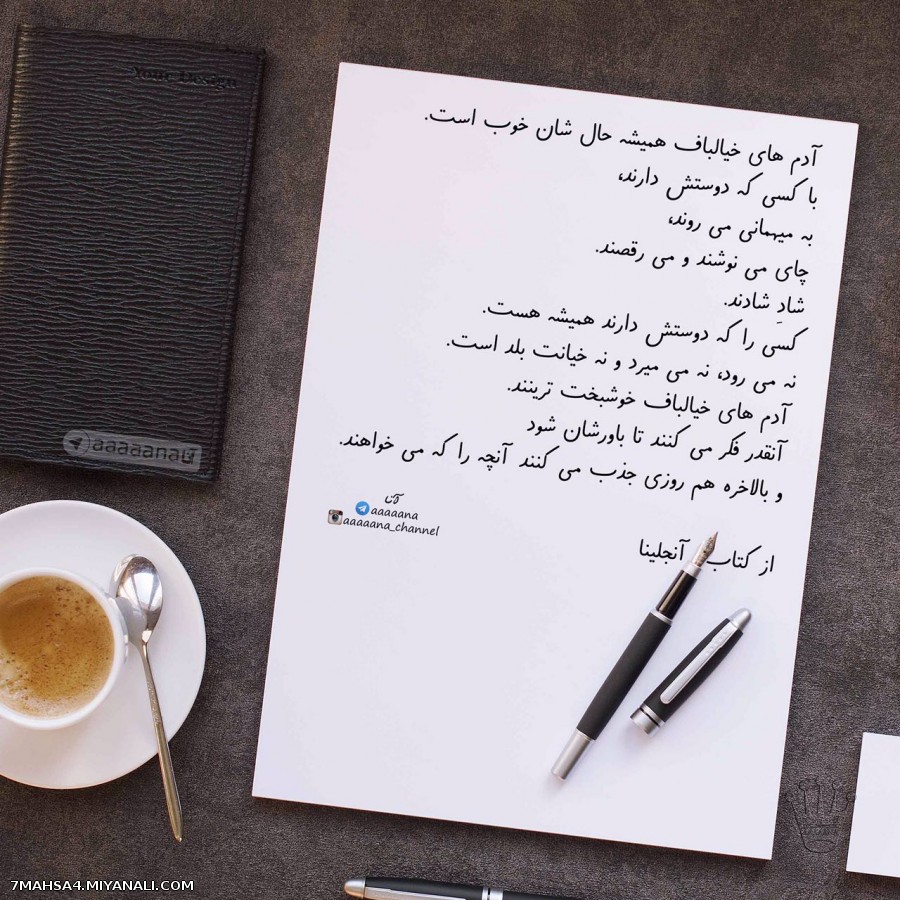 Your Design
آدم های خیالباف همیشه حال شان خوب است.
با کسی که دوستش دارند،
به میهمانی می روند،
چای می نوشند و می رقصند.
شادِ شادند.
کسی را که دوستش دارند همیشه هست.
نه می رود، نه می میرد و نه خیانت بلد است.
آدم های خیالباف خوشبخت ترینند.
آنقدر فکر می کنند تا باورشان شود
و بالاخره هم روزی جذب می کنند آنچه را که می خواهند.
آنا
aaaaana
aaaaana_channel
از کتاب آنجلینا
7MAHSA4.MIYANALI.COM